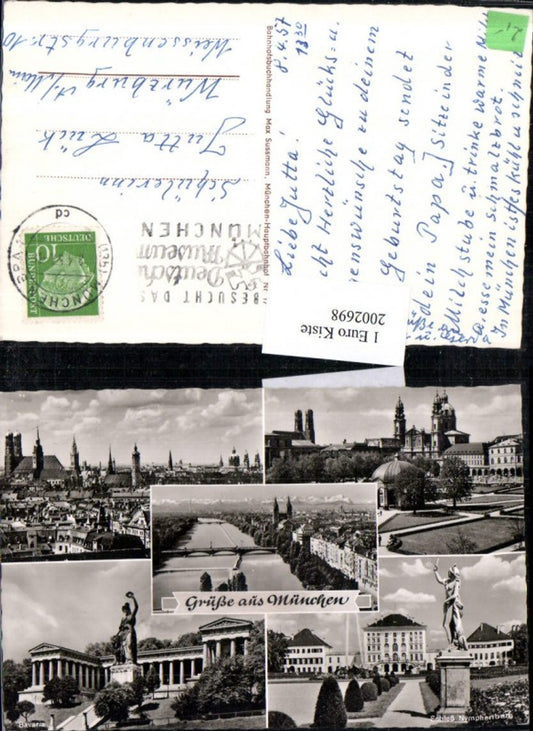 Liebe Jutta!
8.4.57
13 30
ht Herzliche Glücks-u.
enswünsche zu deinem
Geburtstag sendet
dein Papa. Sitze in der
Milchstube u. trinke warme Milch
esse mein Schmalzbrot.
In München ist es kühl u. schneit
Bahnhofsbuchhandlung Max Sussmann, München-Hauptbahnhof
Schülerin
Jutta Lück
Würzburg a/Main
Weissenburgstr. 10
BESUCHT DAS
Deutsche
Museum
MÜNCHEN
cd
10
DEUTSCHE
BUNDESPOST
1 Euro Kiste
2002698
Grüße aus München
Bavaria
Schloß Nymphenburg